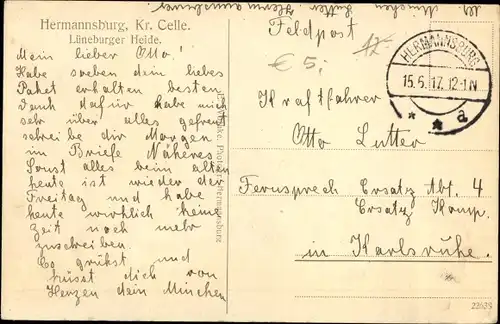 Hermannsburg, Kr. Celle.
Lüneburger Heide.
Mein lieber Otto!
Habe soeben dein liebes
Paket erhalten besten
Dank dafür habe mich
sehr über alles gefreut
schreibe dir Morgen
im Briefe Näheres
Sonst alles beim alten
heute ist wieder der
Freitag und habe
heute wirklich keine
Zeit noch mehr
zuschreiben.
Es grüsst und
küsst dich von
Herzen dein Minchen
Feldpost
€ 5,-
12
HERMANNSBURG
15.6.17. 12-1N
* * a
Kraftfahrer
Otto Lutter
Fernsprech Ersatz Abt. 4
Ersatz Komp.
in Karlsruhe.
22625